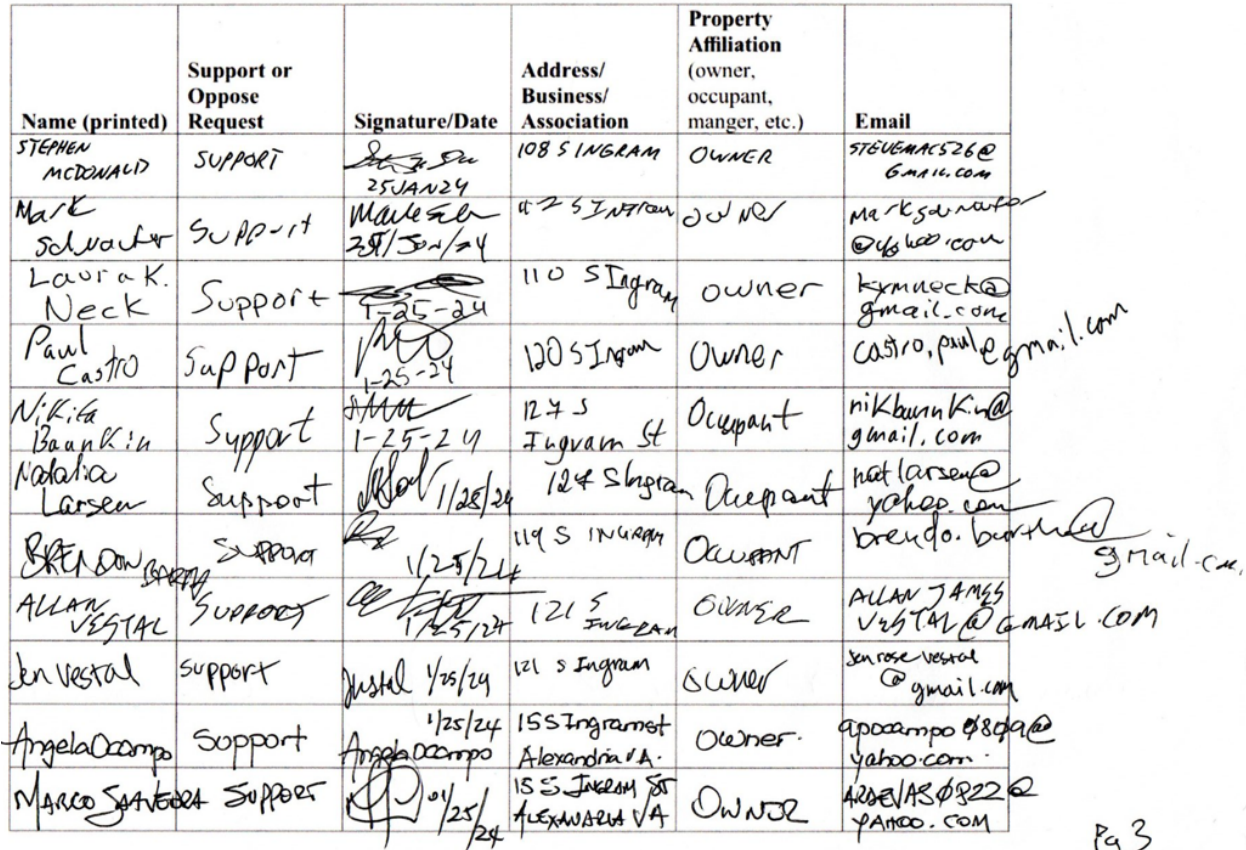 Name (printed) Support or Oppose Request Signature/Date Address/ Business/ Association Property Affiliation (owner, occupant, manger, etc.) Email
STEPHEN MCDONALD SUPPORT 25JAN24 108 S INGRAM OWNER STEVEMAC526@ GMAIL.COM
Mark Support owner @yahoo.com
Laura K. Neck Support 1-25-24 110 S Ingram owner kymneck@ gmail.com
Paul Castro Support 1-25-24 120 S Ingram Owner castro.paul@gmail.com
Nikita Support 1-25-24 127 S Ingram St Occupant gmail.com
Natalia Larsen Support 127 S Ingram Occupant natlarsen@ yahoo.com
BRENDON Support 1/25/24 119 S INGRAM OCCUPANT
ALLAN VESTAL SUPPORT 1/25/24 121 S INGRAM OWNER ALLAN JAMES VESTAL@GMAIL.COM
Jen Vestal Support 1/25/24 121 S Ingram owner jenrosevestal @gmail.com
Angela Ocampo Support 1/25/24 Angela Ocampo 15 S Ingram st Alexandria VA. Owner. apocampo0809@ yahoo.com
MARCO SAAVEDRA SUPPORT 01/25/24 15 S. INGRAM ST ALEXANDRIA VA OWNER YAHOO.COM
Pg 3